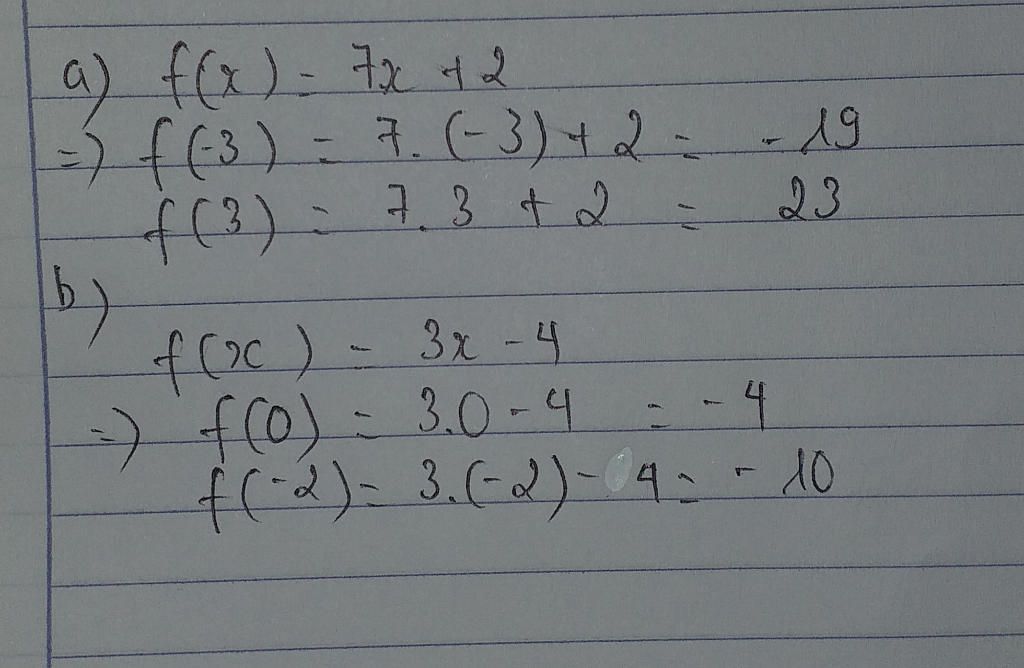 a) f(x) = 7x + 2
=) f(-3) = 7. (-3) + 2 = -19
f(3) = 7.3 + 2 = 23
b)
f(x) = 3x - 4
=) f(0) = 3.0 - 4 = -4
f(-2) = 3.(-2) - 4 = -10